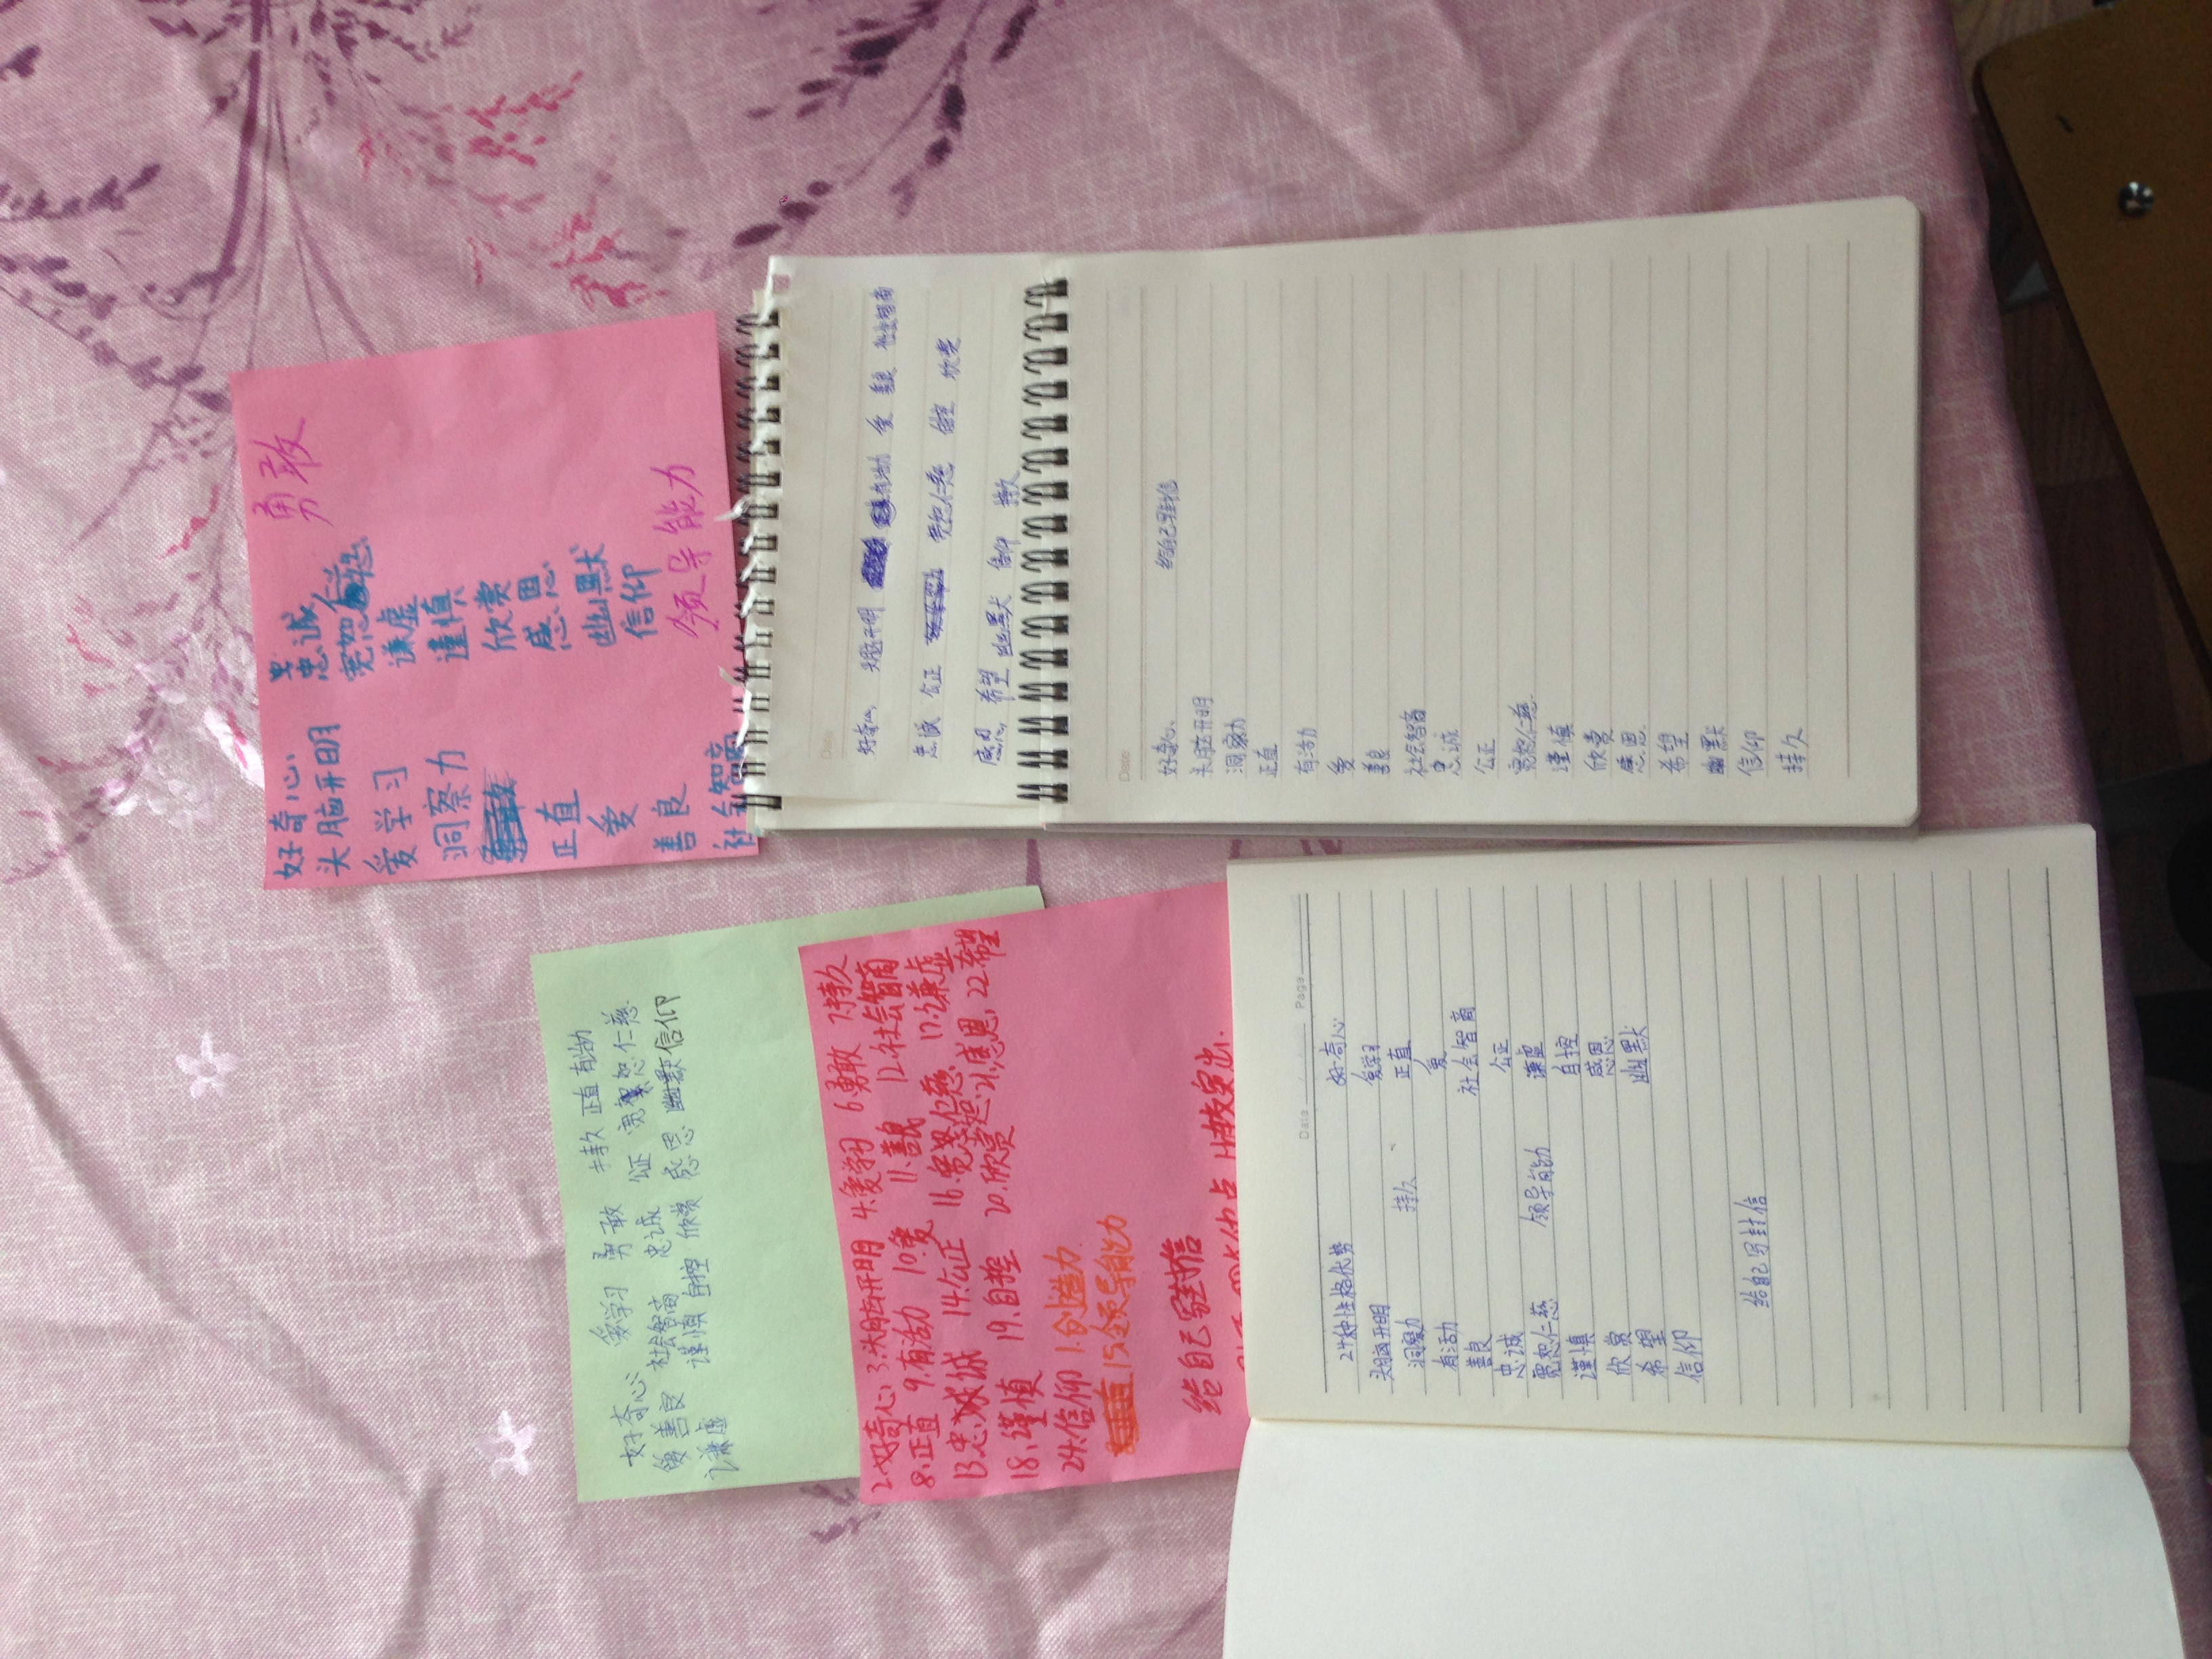 好奇心 爱学习 勇敢 持久 正直 有活力
爱 善良 社会智商 忠诚 公正 宽恕仁慈
谦虚 谨慎 自控 欣赏 感恩 幽默 信仰
2.好奇心 3.头脑开明 4.爱学习 6.勇敢 7.持久
8.正直 9.有活力 10.爱 11.善良 12.社会智商
13.忠诚 14.公正 16.宽恕仁慈 17.谦虚
18.谨慎 19.自控 20.欣赏 21.感恩 22.希望
24.信仰 1.创造力
15.领导能力
给自己写封信
Date Page
24种性格优势 好奇心
头脑开明 爱学习
洞察力 持久 正直
有活力 爱
善良 社会智商
忠诚 公正
宽恕仁慈 领导能力 谦虚
谨慎 自控
欣赏 感恩
希望 幽默
信仰
给自己写封信
好奇心 忠诚 勇敢
头脑开明 宽恕仁慈
爱学习 谦虚
洞察力 谨慎
欣赏
正直 感恩
爱 幽默
善良 信仰
社会智商 领导能力
Date
好奇心 头脑开明 有活力 爱 善良 社会智商
忠诚 公正 宽恕仁慈 自控 欣赏
感恩 希望 幽默 信仰 持久
Date
好奇心 给自己写封信
头脑开明
洞察力
正直
有活力
爱
善良
社会智商
忠诚
公正
宽恕仁慈
谨慎
欣赏
感恩
希望
幽默
信仰
持久